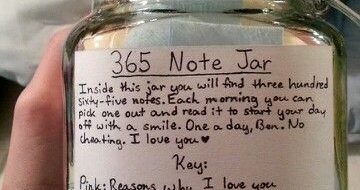 365 Note Jar
Inside this jar you will find three hundred
sixty-five notes. Each morning you can
pick one out and read it to start your day
off with a smile. One a day, Ben. No
cheating. I love you♥
Key:
Pink: Reasons why I love you